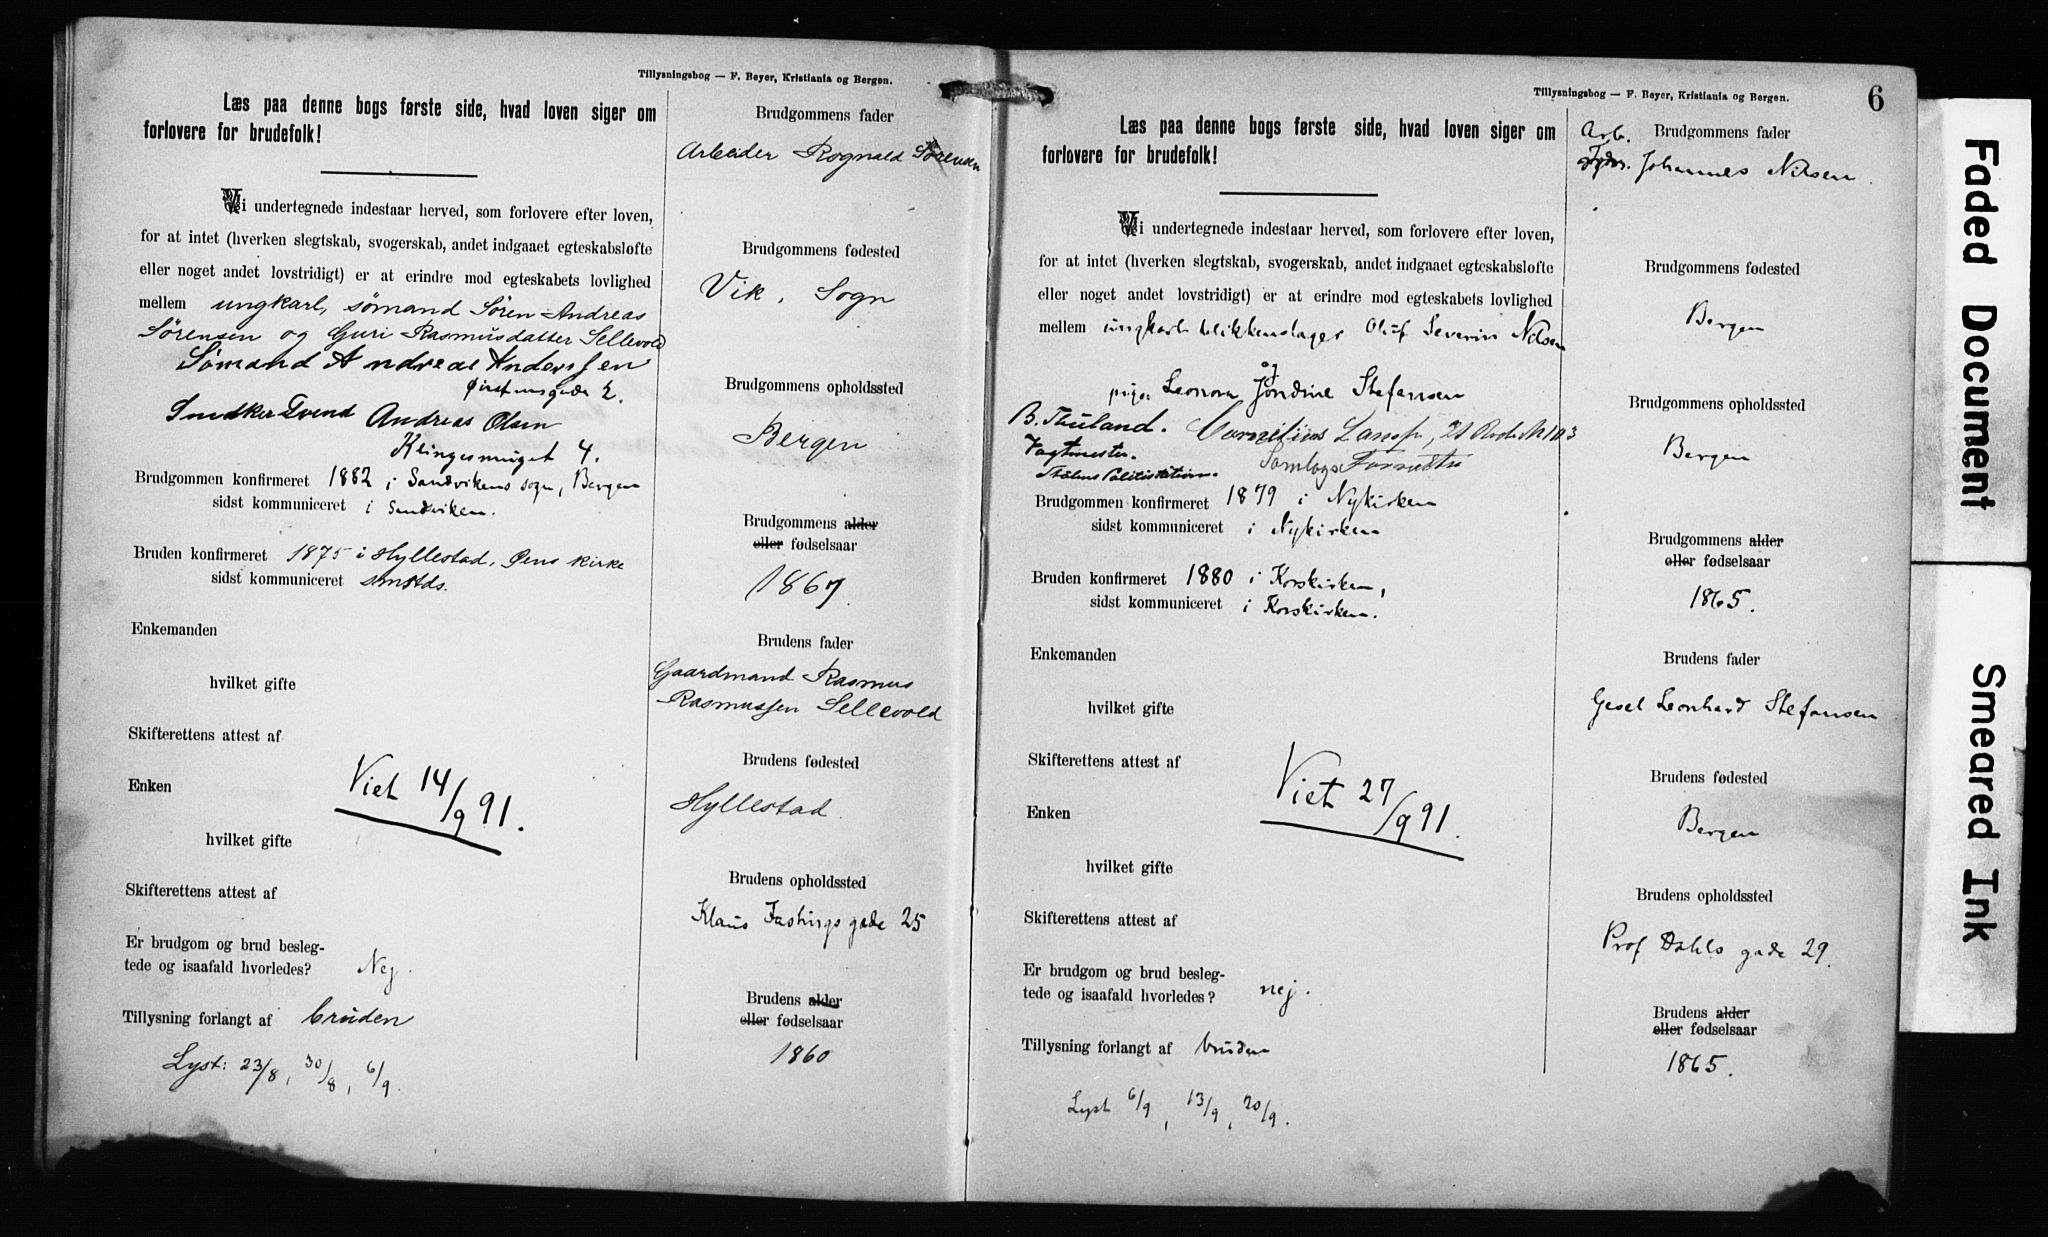 Tillysningsbog — F. Beyer, Kristiania og Bergen.
Læs paa denne bogs første side, hvad loven siger om
forlovere for brudefolk!
Vi undertegnede indestaar herved, som forlovere efter loven,
for at intet (hverken slegtskab, svogerskab, andet indgaaet egteskabsløfte
eller noget andet lovstridigt) er at erindre mod egteskabets lovlighed
mellem ungkarl, sømand Søren Andreas
Sørensen og Guri Rasmusdatter Sellevold
Sømand Andreas Anderssen
gade 2.
Snedker Svend Andreas Olsen
Klingesmuget 4.
Brudgommen konfirmeret 1882 i Sandvikens sogn, Bergen
sidst kommuniceret i Sandviken.
Bruden konfirmeret 1875 i Hyllestad, Øens kirke
sidst kommuniceret smstds.
Enkemanden
hvilket gifte
Skifterettens attest af
Enken
Viet 14/9 91.
hvilket gifte
Skifterettens attest af
Er brudgom og brud besleg-
tede og isaafald hvorledes? Nej.
Tillysning forlangt af bruden
Lyst: 23/8, 30/8, 6/9.
Brudgommens fader
Arbeider Rognald Sørensen
Brudgommens fødested
Vik, Sogn
Brudgommens opholdssted
Bergen
Brudgommens alder
eller fødselsaar
1867.
Brudens fader
Gaardmand Rasmus
Rasmussen Sellevold
Brudens fødested
Hyllestad.
Brudens opholdssted
Klaus Fastings gade 25
Brudens alder
eller fødselsaar
1860
Tillysningsbog — F. Beyer, Kristiania og Bergen.
6
Læs paa denne bogs første side, hvad loven siger om
forlovere for brudefolk!
Vi undertegnede indestaar herved, som forlovere efter loven,
for at intet (hverken slegtskab, svogerskab, andet indgaaet egteskabsløfte
eller noget andet lovstridigt) er at erindre mod egteskabets lovlighed
mellem ungkarl blikkenslager Oluf Severin Nilsen
og
pige Leonora Jondine Stefansen
B. Thuland. Cornelius
Vagtmester.
Politistation.
Brudgommen konfirmeret 1879 i Nykirken
sidst kommuniceret i Nykirken
Bruden konfirmeret 1880 i Korskirken,
sidst kommuniceret i Korskirken.
Enkemanden
hvilket gifte
Skifterettens attest af
Viet 27/9 91.
Enken
hvilket gifte
Skifterettens attest af
Er brudgom og brud besleg-
tede og isaafald hvorledes? nej.
Tillysning forlangt af bruden
Lyst 6/9, 13/9, 20/9.
Arb. Brudgommens fader
Johannes Nilsen
Brudgommens fødested
Bergen
Brudgommens opholdssted
Bergen
Brudgommens alder
eller fødselsaar
1865.
Brudens fader
Gesel Leonhard Stefansen
Brudens fødested
Bergen
Brudens opholdssted
Prof Dahls gade 29.
Brudens alder
eller fødselsaar
1865.
Faded Document
Smeared Ink